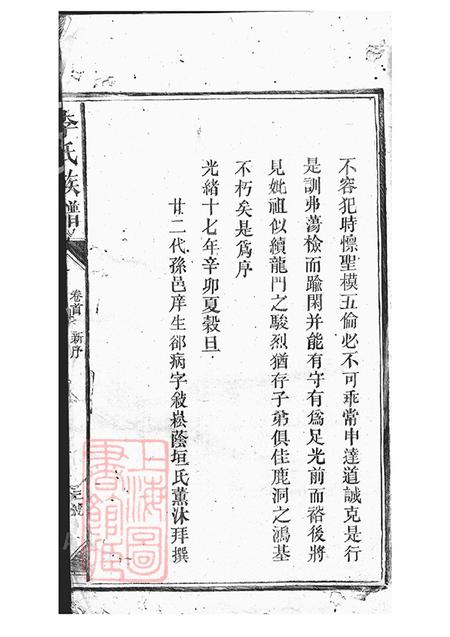 不容犯時懍聖模五倫必不可乖常申達道誠克是行
是訓弗蕩檢而踰閑并能有守有為足光前而裕後將
見妣祖似續龍門之駿烈猶存子弟俱佳鹿洞之鴻基
不朽矣是為序
光緒十七年辛卯夏榖旦
廿二代孫邑庠生郤病字敍崧蔭垣氏薰沐拜撰
李氏族譜
卷首 新序
上海圖書館藏